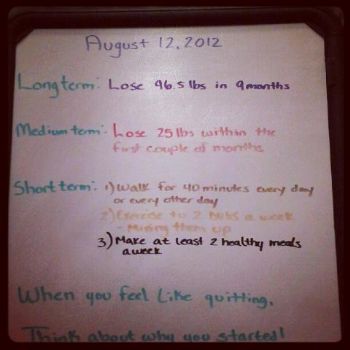 August 12, 2012
Long term: Lose 96.5 lbs in 9 months
Medium term: Lose 25 lbs within the
first couple of months
Short term: 1) Walk for 40 minutes every day
or every other day
2) Exercise to 2 a week
- Mixing them up
3) Make at least 2 healthy meals
a week
When you feel like quitting,
Think about why you started!